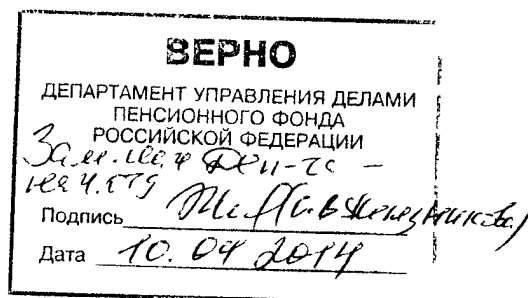 ВЕРНО
ДЕПАРТАМЕНТ УПРАВЛЕНИЯ ДЕЛАМИ
ПЕНСИОННОГО ФОНДА
РОССИЙСКОЙ ФЕДЕРАЦИИ
Зам. нач. Деп-та -
нач.
Подпись
Дата 10. 04 2014